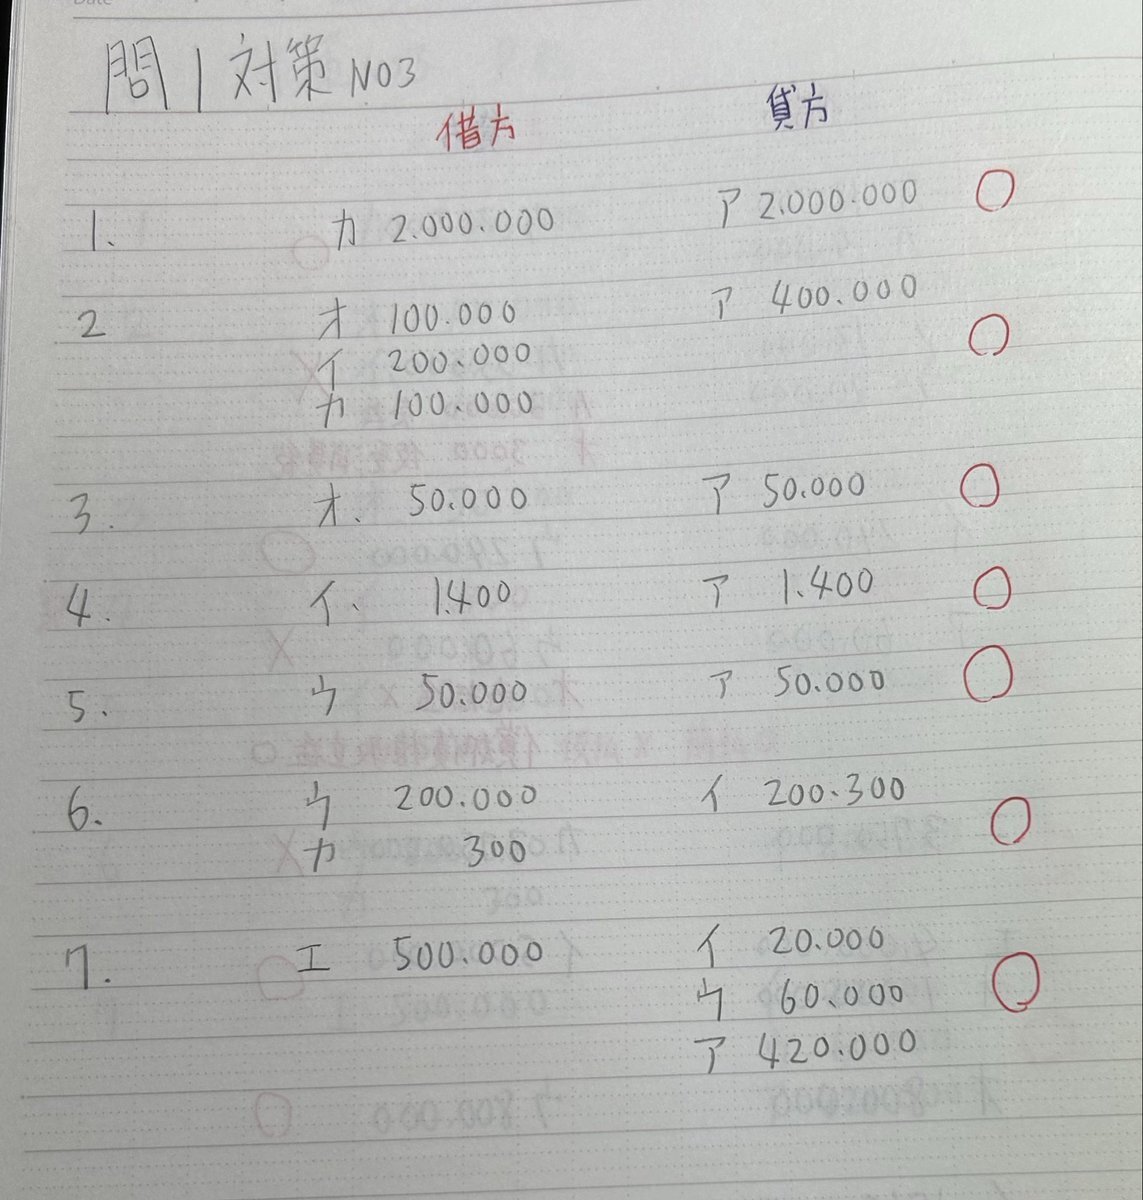 問1対策 NO3
借方 貸方
1. カ 2.000.000 ア 2.000.000
2 オ 100.000 ア 400.000
イ 200.000
カ 100.000
3. オ. 50.000 ア 50.000
4. イ. 1.400 ア 1.400
5. ウ 50.000 ア 50.000
6. ウ 200.000 イ 200.300
カ 300
7. エ 500.000 イ 20.000
ウ 60.000
ア 420.000